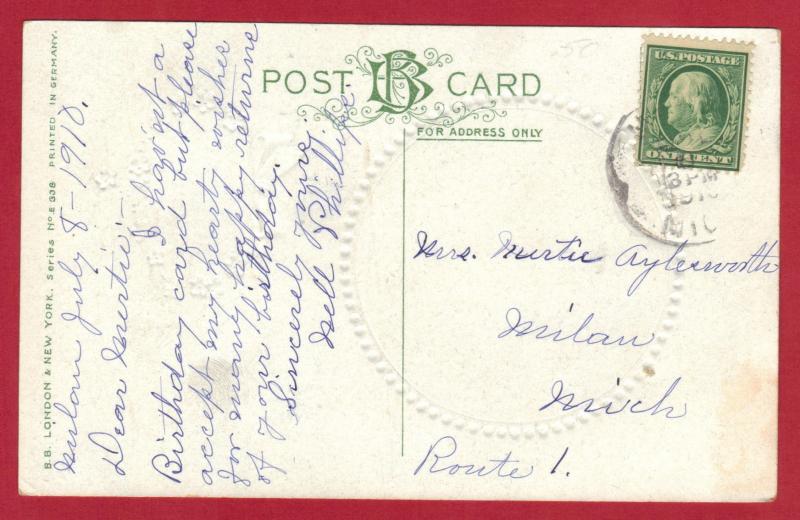 B.B. LONDON & NEW YORK. Series No. E 338 PRINTED IN GERMANY.
POST CARD
FOR ADDRESS ONLY
U.S. POSTAGE
ONE CENT
Milan July 8-1910.
Dear Mertie:-
I hav'nt a
Birthday card but please
accept my hearty wishes
for many happy returns
of your birthday.
Sincerely Yours,
Nell Phillips.
Mrs. Mertie Aylesworth
Milan
Mich
Route 1.